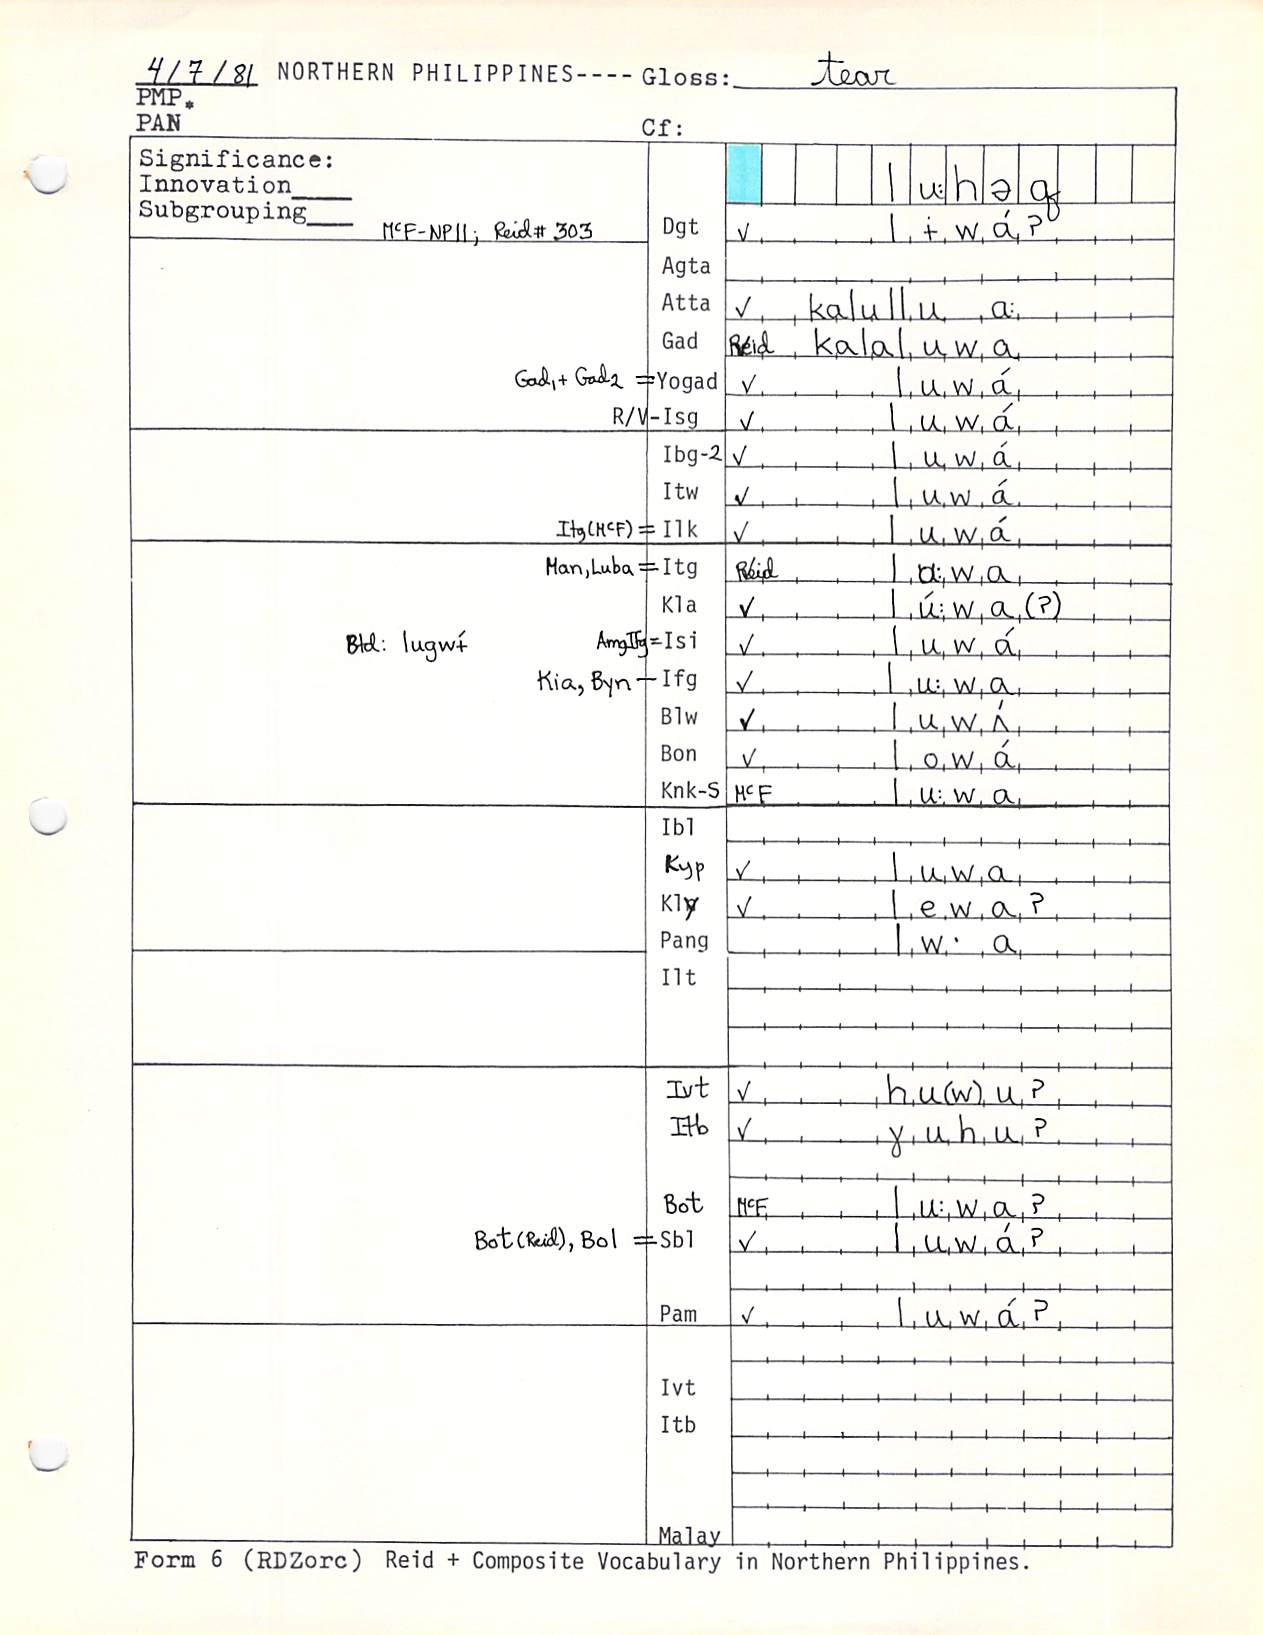 4/7/81 NORTHERN PHILIPPINES---- Gloss: tear
PMP*
PAN Cf:
Significance:
Innovation____
Subgrouping___
McF-NPII; Reid# 303
lu:həq
Dgt ✓ lɨwáʔ
Agta
Atta ✓ kalullu a:
Gad Reid kalaluwa
Gad1+ Gad2 = Yogad ✓ luwá
R/V-Isg ✓ luwá
Ibg-2 ✓ luwá
Itw ✓ luwá
Itg(McF) = Ilk ✓ luwá
Man, Luba = Itg Reid l wa
Kla ✓ lú:wa(ʔ)
Btd: lugwɨ́ AmgIfg = Isi ✓ luwá
Kia, Byn - Ifg ✓ lu:wa
Blw ✓ luwʌ́
Bon ✓ lowá
Knk-S McF lu:wa
Ibl
Kyp ✓ luwa
Kly ✓ lewaʔ
Pang lw· a
Ilt
Ivt ✓ hu(w)uʔ
Itb ✓ ɣuhuʔ
Bot McF lu:waʔ
Bot (Reid), Bol = Sbl ✓ luwáʔ
Pam ✓ luwáʔ
Ivt
Itb
Malay
Form 6 (RDZorc) Reid + Composite Vocabulary in Northern Philippines.